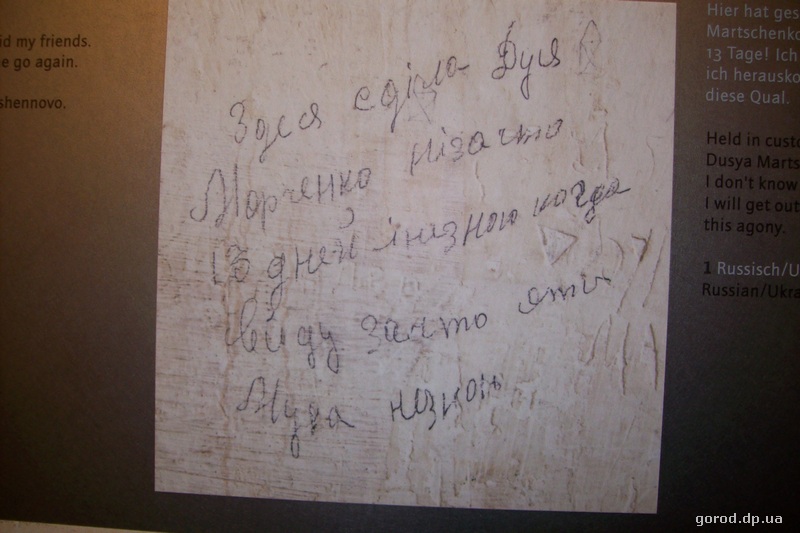 id my friends.
e go again.
shennovo.
Здеся сділа Дуся
Марченко нізачто
13 дней інизною когда
вийду зачто эти
Мука незнаю
Hier hat ges
Martschenko
13 Tage! Ich
ich herausko
diese Qual.
Held in custo
Dusya Marts
I don't know
I will get out
this agony.
1 Russisch/U
Russian/Ukra
gorod.dp.ua